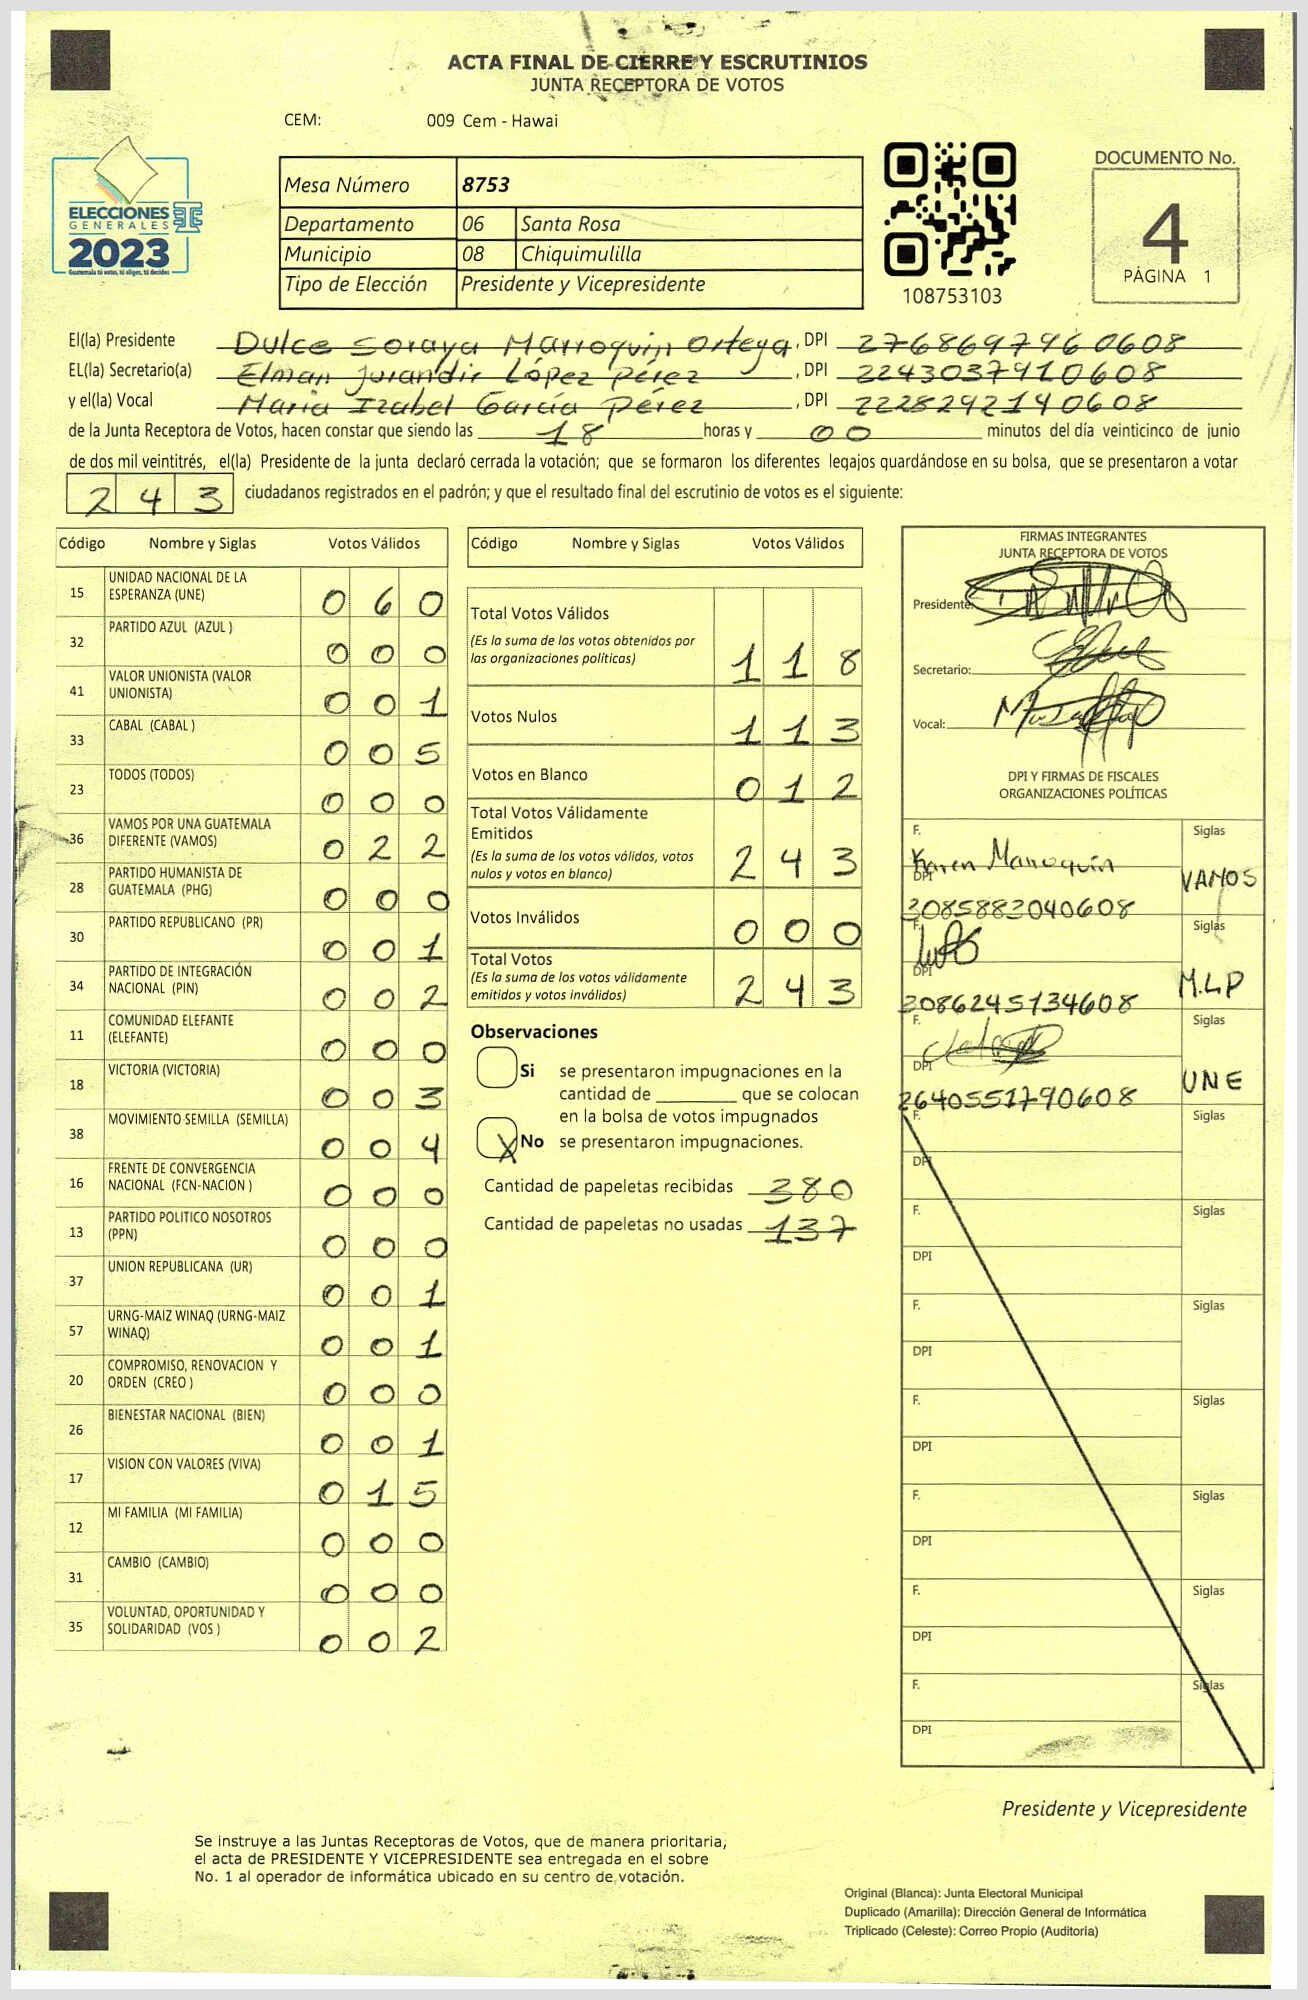 ACTA FINAL DE CIERRE Y ESCRUTINIOS
JUNTA RECEPTORA DE VOTOS
CEM: 009 Cem - Hawai
ELECCIONES
GENERALES
2023
Guatemala tú votas, tú eliges, tú decides
Mesa Número 8753
Departamento 06 Santa Rosa
Municipio 08 Chiquimulilla
Tipo de Elección Presidente y Vicepresidente
108753103
DOCUMENTO No.
4
PÁGINA 1
El(la) Presidente Dulce Soraya Marroquin Ortega, DPI 2768697960608
EL(la) Secretario(a) Elman Jurandir López Pérez, DPI 2243037910608
y el(la) Vocal Maria Izabel García Pérez, DPI 2228292140608
de la Junta Receptora de Votos, hacen constar que siendo las 18 horas y 00 minutos del día veinticinco de junio
de dos mil veintitrés, el(la) Presidente de la junta declaró cerrada la votación; que se formaron los diferentes legajos quardándose en su bolsa, que se presentaron a votar
243 ciudadanos registrados en el padrón; y que el resultado final del escrutinio de votos es el siguiente:
Código Nombre y Siglas Votos Válidos
15 UNIDAD NACIONAL DE LA ESPERANZA (UNE) 060
32 PARTIDO AZUL (AZUL ) 000
41 VALOR UNIONISTA (VALOR UNIONISTA) 001
33 CABAL (CABAL ) 005
23 TODOS (TODOS) 000
36 VAMOS POR UNA GUATEMALA DIFERENTE (VAMOS) 022
28 PARTIDO HUMANISTA DE GUATEMALA (PHG) 000
30 PARTIDO REPUBLICANO (PR) 001
34 PARTIDO DE INTEGRACIÓN NACIONAL (PIN) 002
11 COMUNIDAD ELEFANTE (ELEFANTE) 000
18 VICTORIA (VICTORIA) 003
38 MOVIMIENTO SEMILLA (SEMILLA) 004
16 FRENTE DE CONVERGENCIA NACIONAL (FCN-NACION ) 000
13 PARTIDO POLITICO NOSOTROS (PPN) 000
37 UNION REPUBLICANA (UR) 001
57 URNG-MAIZ WINAQ (URNG-MAIZ WINAQ) 001
20 COMPROMISO, RENOVACION Y ORDEN (CREO ) 000
26 BIENESTAR NACIONAL (BIEN) 001
17 VISION CON VALORES (VIVA) 015
12 MI FAMILIA (MI FAMILIA) 000
31 CAMBIO (CAMBIO) 000
35 VOLUNTAD, OPORTUNIDAD Y SOLIDARIDAD (VOS ) 002
Código Nombre y Siglas Votos Válidos
Total Votos Válidos 118
(Es la suma de los votos obtenidos por
las organizaciones políticas)
Votos Nulos 113
Votos en Blanco 012
Total Votos Válidamente
Emitidos 243
(Es la suma de los votos válidos, votos
nulos y votos en blanco)
Votos Inválidos 000
Total Votos 243
(Es la suma de los votos válidamente
emitidos y votos inválidos)
Observaciones
Si se presentaron impugnaciones en la
cantidad de ________ que se colocan
en la bolsa de votos impugnados
X No se presentaron impugnaciones.
Cantidad de papeletas recibidas 380
Cantidad de papeletas no usadas 137
FIRMAS INTEGRANTES
JUNTA RECEPTORA DE VOTOS
Presidente:
Secretario:
Vocal:
DPI Y FIRMAS DE FISCALES
ORGANIZACIONES POLÍTICAS
F. Karen Marroquin Siglas
DPI 3085883040608 VAMOS
F. Siglas
DPI 3086245134608 M.L.P
F. Siglas
DPI 2640551790608 UNE
F. Siglas
DPI
F. Siglas
DPI
F. Siglas
DPI
F. Siglas
DPI
F. Siglas
DPI
F. Siglas
DPI
F. Siglas
DPI
Presidente y Vicepresidente
Se instruye a las Juntas Receptoras de Votos, que de manera prioritaria,
el acta de PRESIDENTE Y VICEPRESIDENTE sea entregada en el sobre
No. 1 al operador de informática ubicado en su centro de votación.
Original (Blanca): Junta Electoral Municipal
Duplicado (Amarilla): Dirección General de Informática
Triplicado (Celeste): Correo Propio (Auditoría)